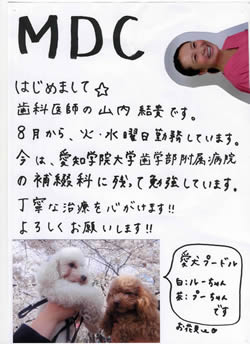 MDC
はじめまして☆
歯科医師の山内結貴です。
8月から、火・水曜日勤務しています。
今は、愛知学院大学歯学部附属病院
の補綴科に残って勉強しています。
丁寧な治療を心がけます!!
よろしくお願いします!!
愛犬プードル
白:ルーちゃん
茶:プーちゃん
です
お花見